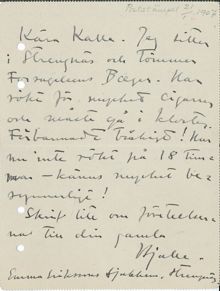 Poststämpel 21/5 1907
Kära Kalle. Jag sitter
i Strengnäs och tömmer
Forsagelsens Bæger. Har
rökt för mycket cigarrer
och måste gå i kloster.
Förbannadt tråkigt! Har
nu inte rökt på 18 tim-
mar – känns mycket be-
synnerligt!
Skrif lite om förhållan-
na till din gamla
Hjalle.
Emma Erikssons Sjukhem, Strengnäs